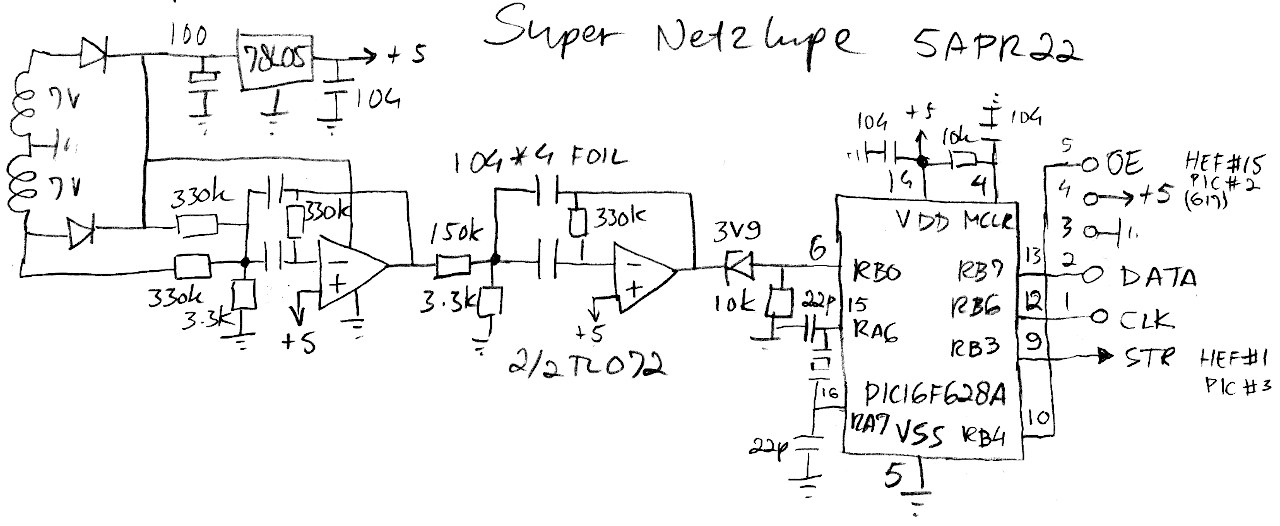 Super Netzlupe 5APR22
100
78L05
+5
104
7V
7V
330k
330k
3.3k
330k
+5
104*4 FOIL
150k
3.3k
330k
+5
2/2 TL072
3V9
10k
22p
22p
104
+5
10k
104
14
4
VDD MCLR
6
RB0
15
RA6
16
RA7
VSS
5
PIC16F628A
RB7
13
RB6
12
RB3
9
RB4
10
5 OE
HEF#15
PIC#2
4 +5
(617)
3
2 DATA
1 CLK
STR
HEF#1
PIC#3